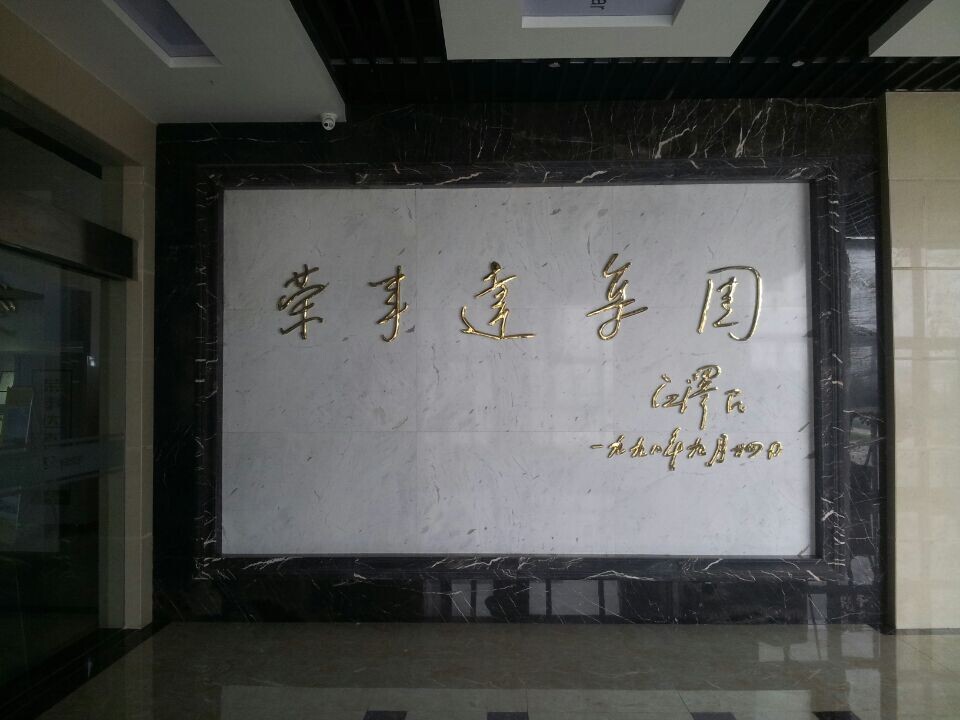 荣事达集团
江泽民
一九九八年九月廿四日